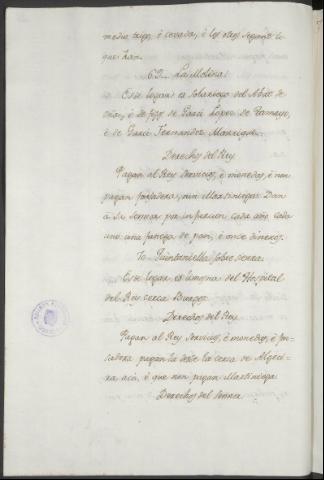 medio trigo, é cevada, é los otros segund lo
que han.
69. La Molina.
Este logar es solariego del Abat de
Oña, é de fijos de Garci Lopez de Tamayo,
é de Garci Fernandez Manrique.
Derechos del Rey
Pagan al Rey servicios, é monedas, é non
pagan fonsadera, nin Martiniega. Dan
á su sennor por infurcion cada año cada
uno una fanega de pan, é once dineros.
70 Quintaniella sobre sierra.
Este logar es limosna del Hospital
del Rey cerca Burgos
Derechos del Rey
Pagan al Rey servicios, é monedas, é fon-
sadera pagan la desde la cerca de Algeci-
ra acá, é que non pagan Martiniega
Derechos del sennor